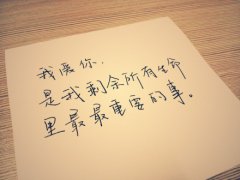 我爱你.
是我剩余所有生命
里最最重要的事。